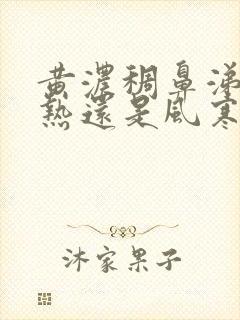 黄濃稠鼻涕
熱還是風寒
沐家果子